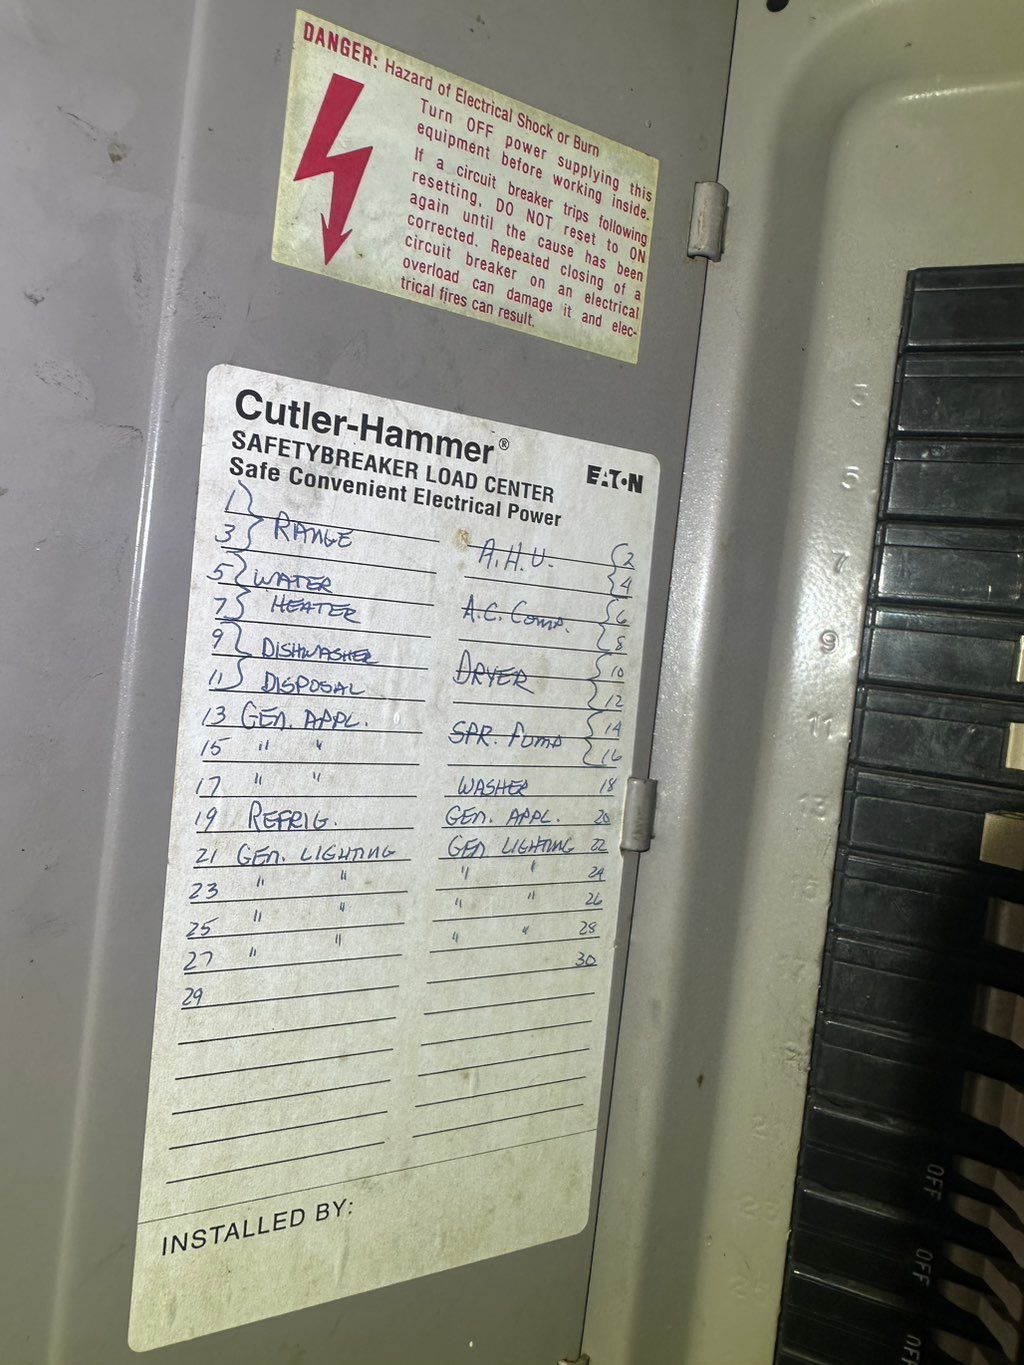 DANGER: Hazard of Electrical Shock or Burn
Turn OFF power supplying this
equipment before working inside.
If a circuit breaker trips following
resetting, DO NOT reset to ON
again until the cause has been
corrected. Repeated closing of a
circuit breaker on an electrical
overload can damage it and elec-
trical fires can result.
Cutler-Hammer®
SAFETYBREAKER LOAD CENTER
Safe Convenient Electrical Power
EATON
1
3 RANGE
5 WATER
7 HEATER
9 DISHWASHER
11 DISPOSAL
13 GEN. APPL.
15 " "
17 " "
19 REFRIG.
21 GEN. LIGHTING
23 " "
25 " "
27 " "
29
A.H.U. 2
4
A.C. COMP. 6
8
DRYER 10
12
SPR. PUMP 14
16
WASHER 18
GEN. APPL. 20
GEN LIGHTING 22
" " 24
" " 26
" " 28
30
INSTALLED BY:
5
7
9
11
13
15
OFF
OFF
OFF